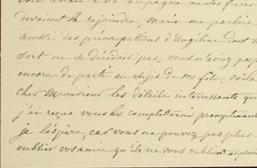 devaient la rejoindre, marie me parlait
aussi des préoccupations d'Angéline dont le
sort ne se décidait pas; vous ne
encore de parti au sujet de ma fille, voilà
cher Monsieur les détails intéressants que
j'ai reçus vous les complèterez promptement
je l'espère, car vous ne pouvez pas plus
oublier vos amis qu'ils ne vous oublient